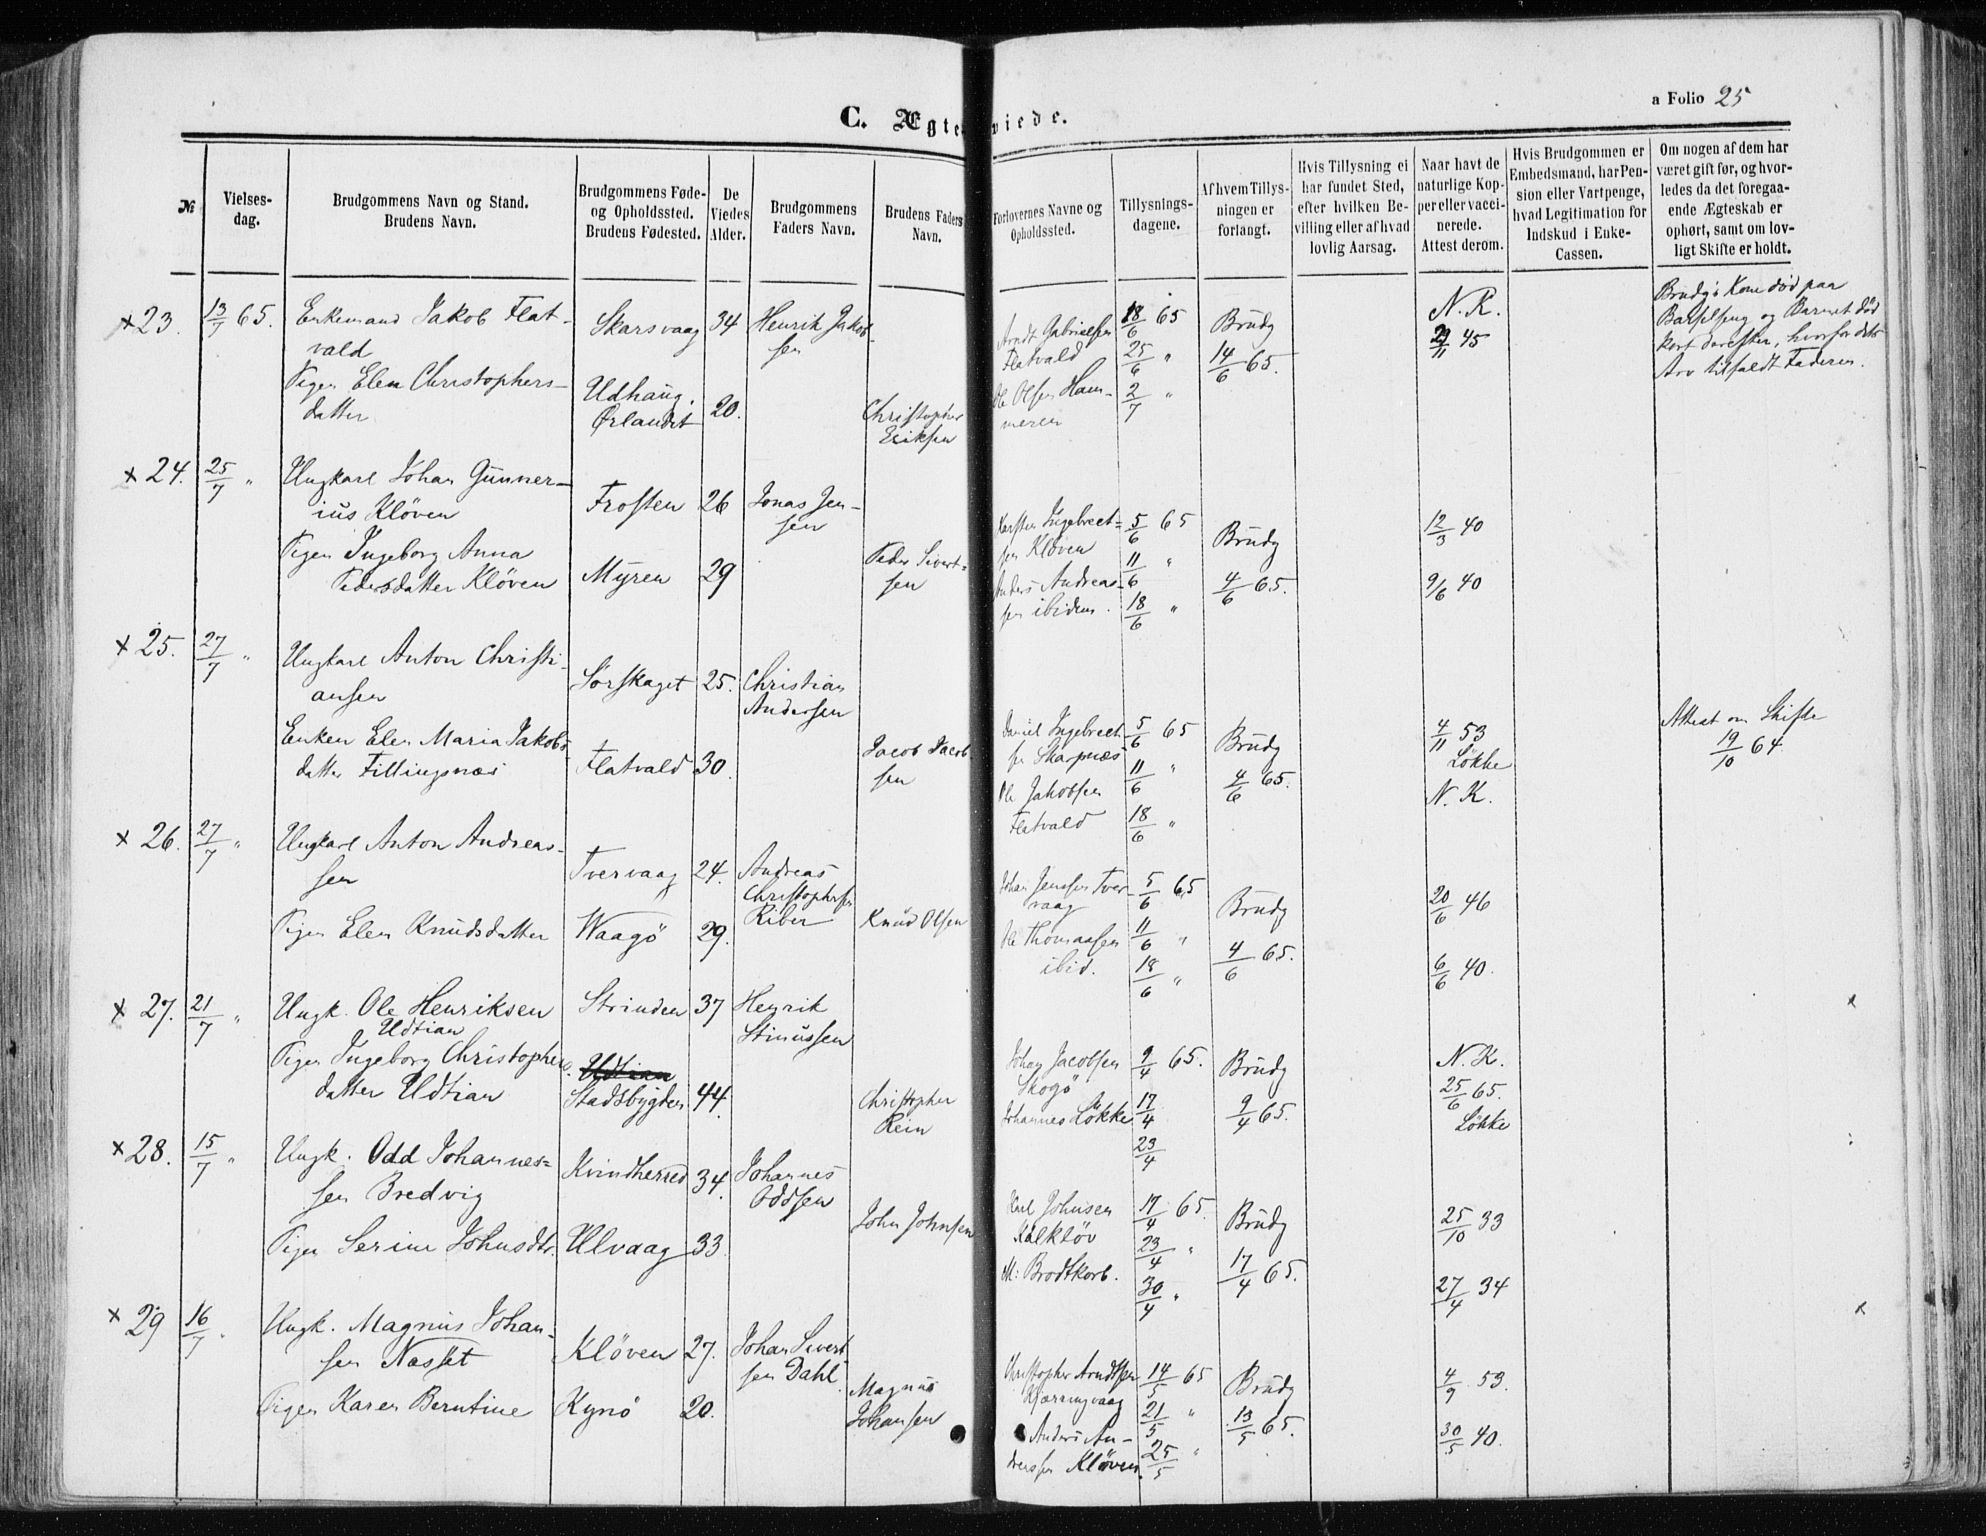 C. Ægteviede.
a Folio 25
№
Vielses-
dag.
Brudgommens Navn og Stand.
Brudens Navn.
Brudgommens Føde-
og Opholdssted.
Brudens Fødested.
De
Viedes
Alder.
Brudgommens
Faders Navn.
Brudens Faders
Navn.
Forlovernes Navne og
Opholdssted.
Tillysnings-
dagene.
Af hvem Tillys-
ningen er
forlangt.
Hvis Tillysning ei
har fundet Sted,
efter hvilken Be-
villing eller af hvad
lovlig Aarsag.
Naar havt de
naturlige Kop-
per eller vacci-
nerede.
Attest derom.
Hvis Brudgommen er
Embedsmand, har Pen-
sion eller Vartpenge,
hvad Legitimation for
Indskud i Enke-
Cassen.
Om nogen af dem har
været gift før, og hvor-
ledes da det foregaa-
ende Ægteskab er
ophørt, samt om lov-
ligt Skifte er holdt.
x 23.
13/7 65.
Enkemand Jakob Flat-
vald
Pigen Elen Christophers-
datter
Skarsvaag
Udhaug.
Ørlandet
34
20.
Henrik Jakob-
sen
Christopher
Eriksen
Arndt Gabrielsen
Flatvald
Ole Olsen Ham-
meren
18/6 65
25/6 "
2/7 "
Brudg
14/6 65.
N. K.
29/11 45
Brudg's Kone død paa
Barselseng og Barnet død
kort derefter, hvorfor dets
Arv tilfaldt Faderen.
x 24.
25/7 "
Ungkarl Johan Gunner-
ius Kløven
Pigen Ingeborg Anna
Pedersdatter Kløven
Frosten
Myren
26
29
Jonas Jen-
sen
Peder Sivert-
sen
Karsten Ingebrect-
sen Kløven
Anders Andreas-
sen ibidem.
5/6 65
11/6 "
18/6 "
Brudg
4/6 65.
12/3 40
9/6 40
x 25.
27/7 "
Ungkarl Anton Christi-
ansen
Enken Elen Maria Jakobs-
datter Fillingsnæs
Sørskaget
Flatvald
25.
30.
Christian
Andersen
Jacob Jacob-
sen
Daniel Ingebrect-
sen Skarpnæs
Ole Jakobsen
Flatvald
5/6 65
11/6 "
18/6 "
Brudg
4/6 65.
4/11 53
Løkke
N. K.
Attest om Skifte
19/10 64
x 26.
27/7 "
Ungkarl Anton Andreas-
sen
Pigen Elen Knudsdatter
Tvervaag
Waagø
24.
29.
Andreas
Christophersen
Riber
Knud Olsen
Johan Jensen Tver-
vaag
Ole Thomassen
ibid.
5/6 65
11/6 "
18/6 "
Brudg
4/6 65.
20/6 46
6/6 40.
x 27.
21/7 "
Ungk. Ole Henriksen
Udtian
Pigen Ingeborg Christophers-
datter Udtian
Strinden
Udtian
Stadsbygden
37
44.
Henrik
Stinussen
Christopher
Rein
Johan Jacobsen
Skogø
Johannes Løkke
9/4 65.
17/4
23/4
Brudg
9/4 65.
N. K.
25/6 65.
Løkke
x 28.
15/7 "
Ungk. Odd Johannes-
sen Bredvig
Pigen Serine Johnsdtr.
Kvindherred
Ulvaag
34.
33.
Johannes
Oddsen
John Johnsen
Karl Johnsen
Kalkløv
M: Brodtkorb.
17/4 65.
23/4 "
30/4 "
Brudg
17/4 65.
25/10 33
27/4 34
x 29
16/7 "
Ungk. Magnus Johan-
sen Nasset
Pigen Karen Berntine
Kløven
Kynø
27.
20.
Johan Sivert-
sen Dahl
Magnus
Johansen
Christopher Arndtsen
Kjærringvaag
Anders An-
dreassen Kløven.
14/5 65
21/5 "
25/5 "
Brudg
13/5 65.
4/9 53.
30/5 40.